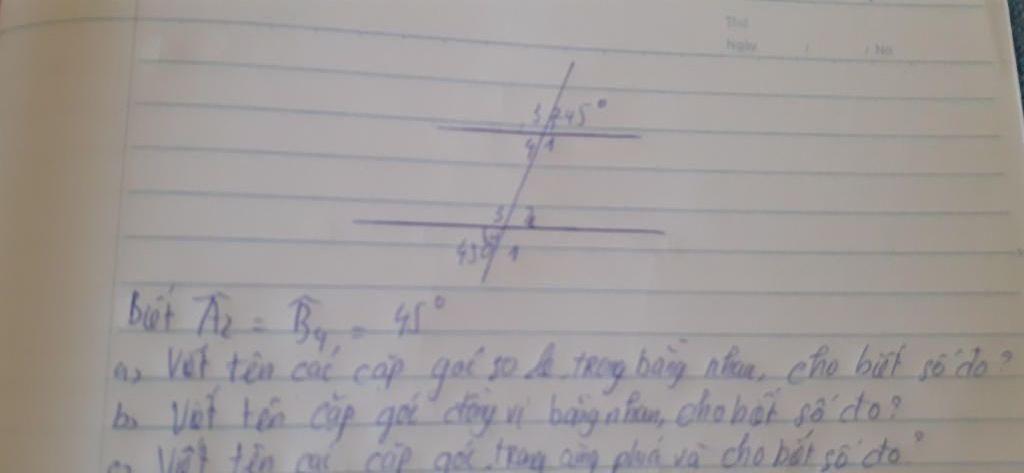 Thứ
Ngày / / No
3 2 45°
4 1
3 2
4 1
Biết Â2 = B̂4 = 45°
a, Viết tên các cặp góc so le trong bằng nhau, cho biết số đo?
b, Viết tên cặp góc đồng vị bằng nhau, cho biết số đo?
c, Viết tên các cặp góc trong cùng phía và cho biết số đo?